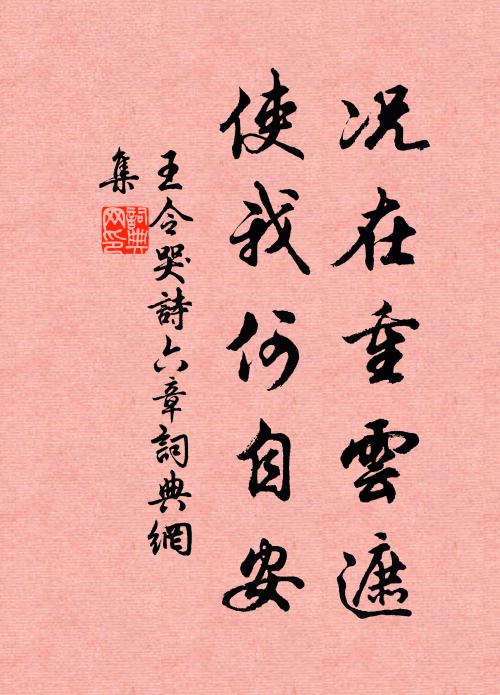 况在重雲遮
使我何自安
王令哭詩六章詞典網
集
詞典
网印